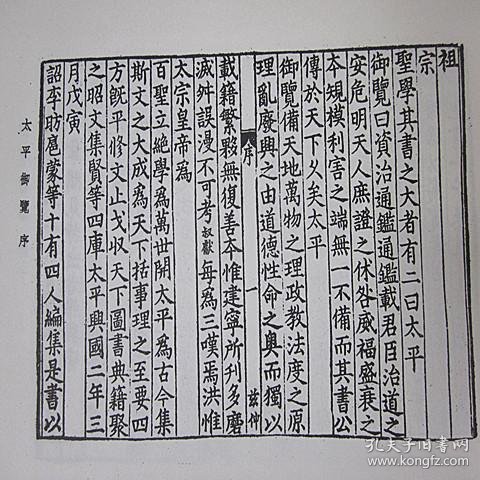 祖
宗
聖學其書之大者有二曰太平
御覽曰資治通鑑通鑑載君臣治道之
安危明天人庶證之休咎威福盛衰之
本規模利害之端無一不備而其書公
傳於天下久矣太平
御覽備天地萬物之理政教法度之原
理亂廢興之由道德性命之奧而獨以
序
一
茲仲
載籍繁夥無復善本惟建寧所刊多磨
滅舛誤漫不可考叔獻每為三嘆焉洪惟
太宗皇帝為
百聖立絕學為萬世開太平為古今集
斯文之大成為天下括事理之至要四
方旣平修文止戈收天下圖書典籍聚
之昭文集賢等四庫太平興國二年三
月戊寅
詔李昉扈蒙等十有四人編集是書以
太平御覽 序
孔夫子旧书网
www.kongfz.com